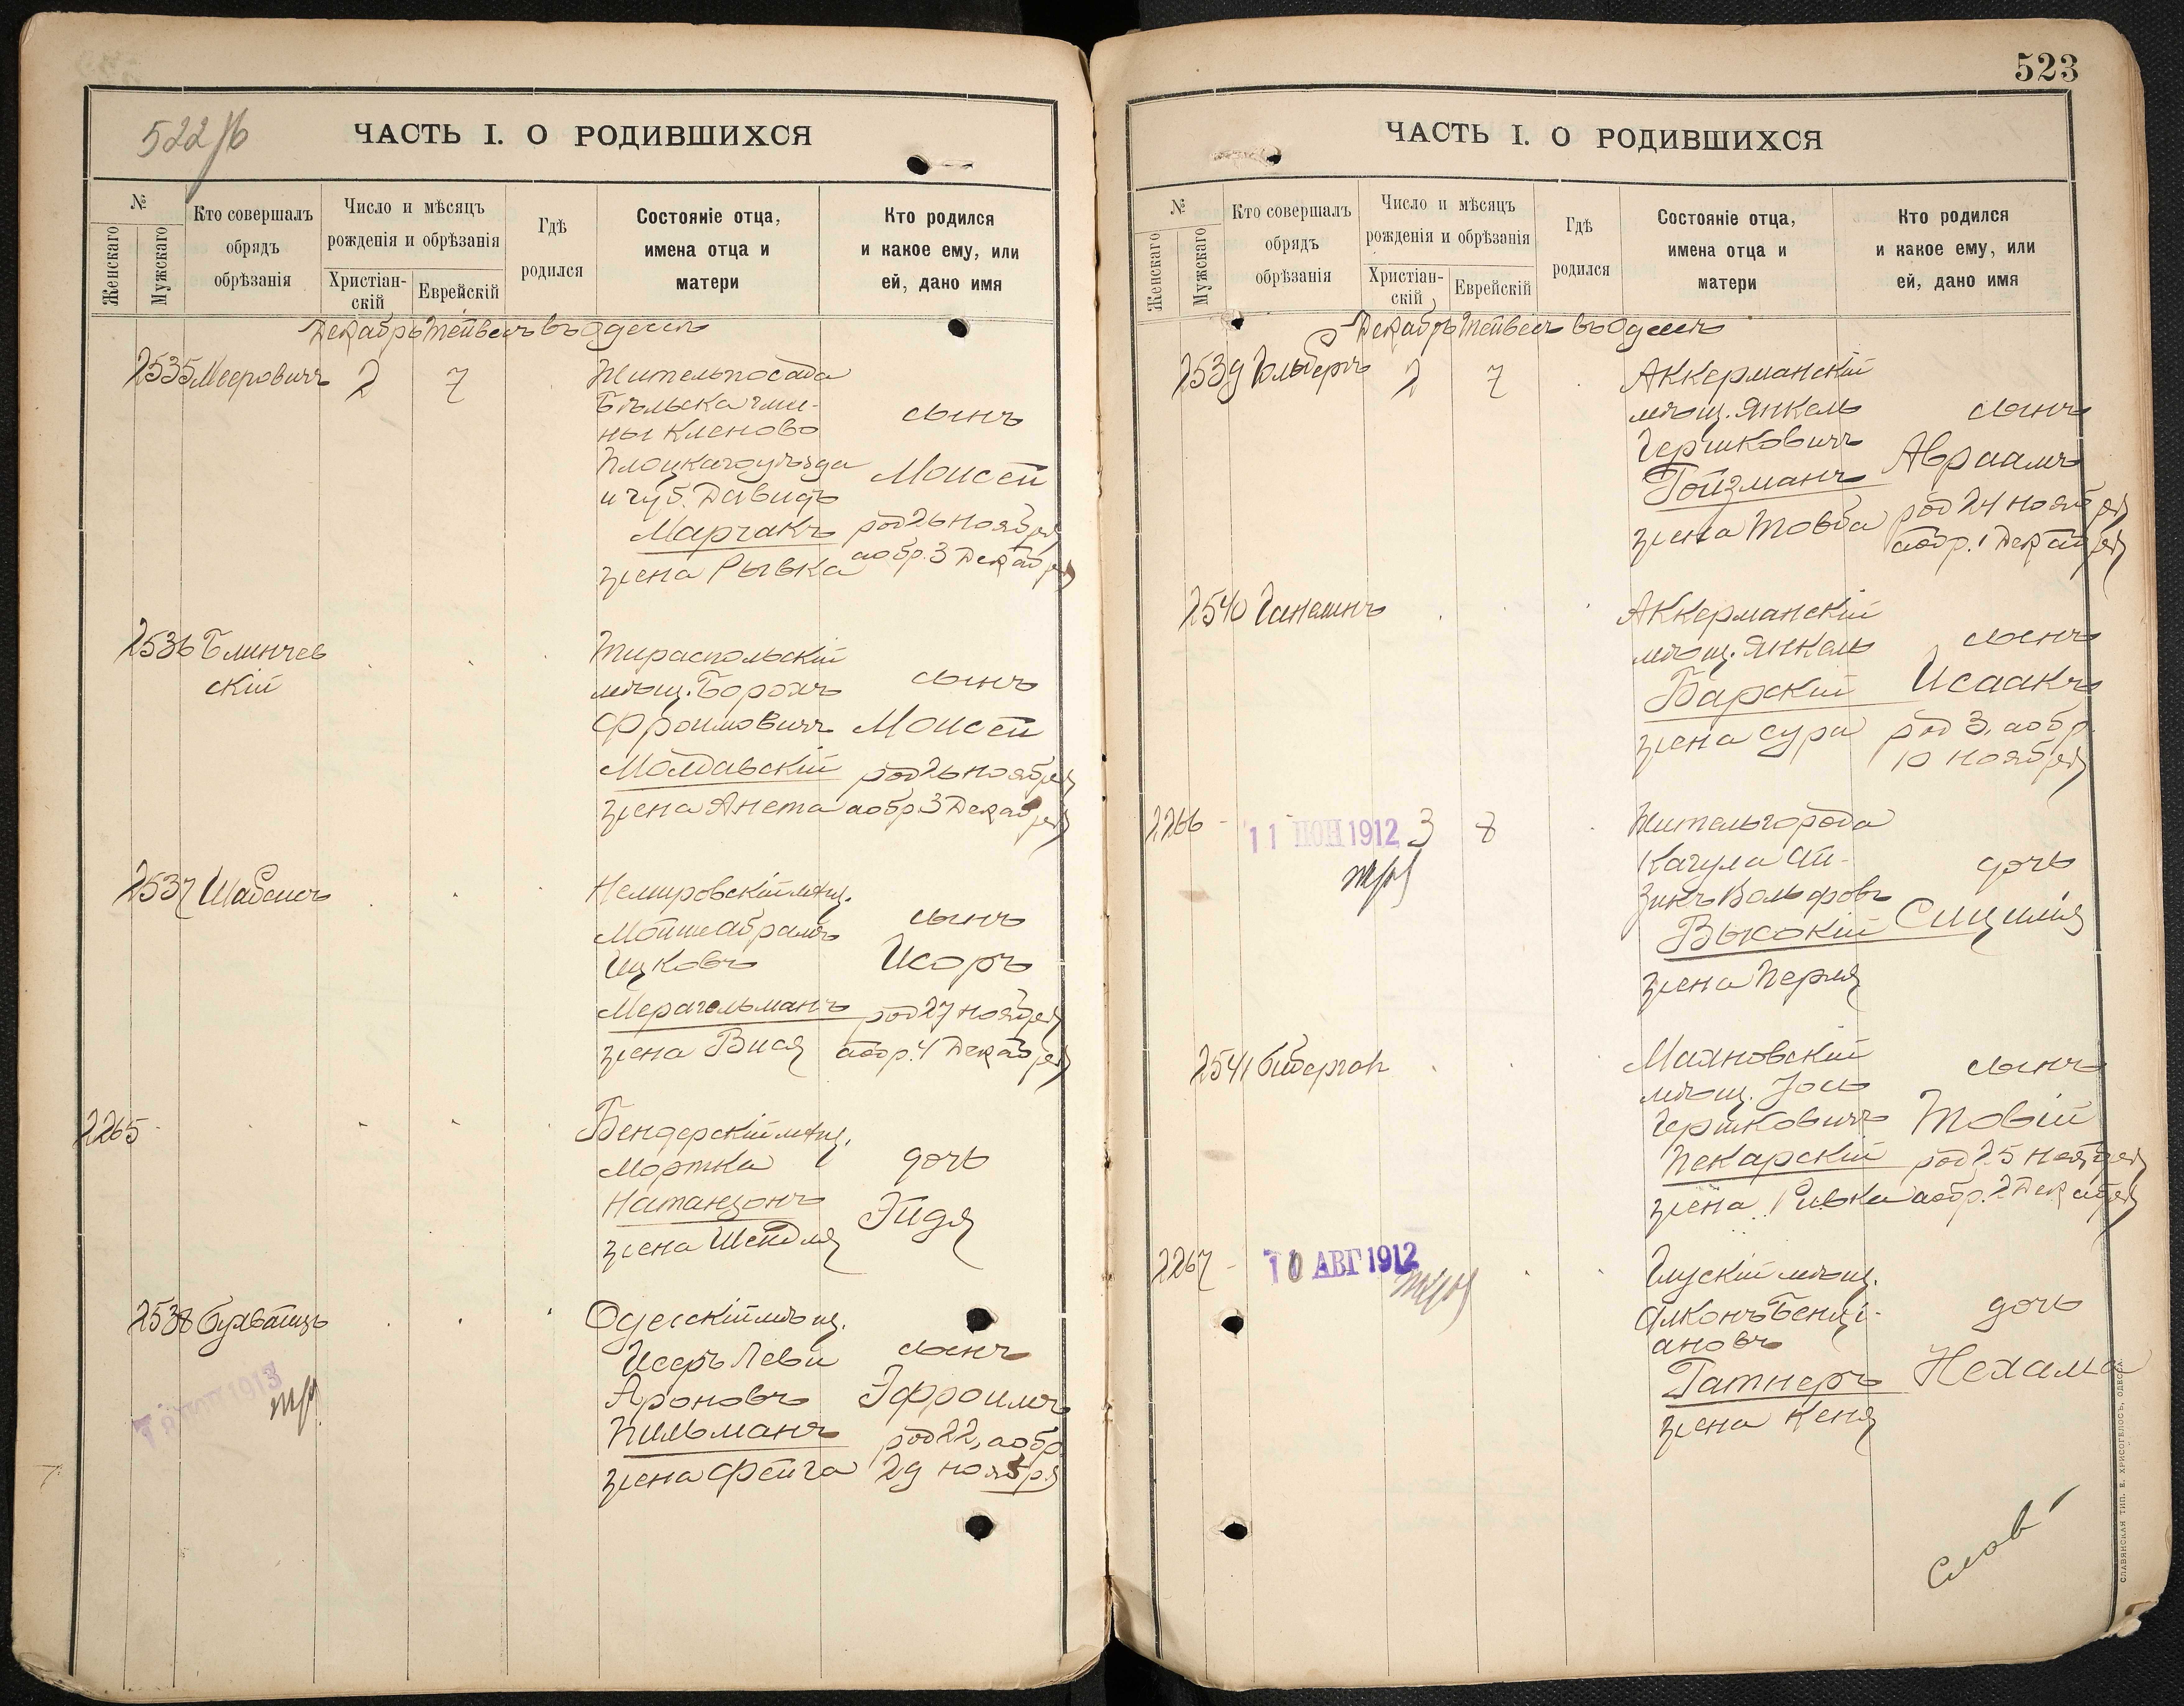 522 об
ЧАСТЬ I. О РОДИВШИХСЯ
№
Женскаго
Мужскаго
Кто совершалъ
обрядъ
обрѣзанія
Число и мѣсяцъ
рожденія и обрѣзанія
Христіан-
скій
Еврейскій
Гдѣ
родился
Состояніе отца,
имена отца и
матери
Кто родился
и какое ему, или
ей, дано имя
Декабрь Тейвесъ въ Одессѣ
2535 Мееровичъ 2 7
Житель посада
Бѣльска гми-
ны Кленово
Плоцкаго уѣзда
и губ. Давидъ
Марчакъ
жена Рывка
сынъ
Моисей
род 26 ноября
а обр. 3 Декабря
2536 Блинчев
скій
Тираспольскій
мѣщ. Борохъ
Фроимовичъ
Молдавскій
жена Анета
сынъ
Моисей
род 26 ноября
а обр 3 Декабря
2537
Немировскій мѣщ.
Мойше Абрамъ
Ицковъ
Мерагельманъ
жена Бися
сынъ
Исоръ
род 27 ноября
а обр. 4 Декабря
2265
Бендерскій мѣщ.
Мортка
Натанзонъ
жена Шейдля
дочь
Эйдя
2538
1913
Одесскій мѣщ.
Исеръ Леви
Ароновъ
Пильманъ
жена Фейга
сынъ
Эфроимъ
род 22, а обр
29 ноября
523
ЧАСТЬ I. О РОДИВШИХСЯ
№
Женскаго
Мужскаго
Кто совершалъ
обрядъ
обрѣзанія
Число и мѣсяцъ
рожденія и обрѣзанія
Христіан-
скій
Еврейскій
Гдѣ
родился
Состояніе отца,
имена отца и
матери
Кто родился
и какое ему, или
ей, дано имя
Декабрь Тейвесъ въ Одессѣ
2539 Гольбергъ 2 7
Аккерманскій
мѣщ. Янкель
Гершковичъ
Гойзманъ
жена Товба
сынъ
Авраамъ
род 24 ноября
а обр. 1 Декабря
2540
Аккерманскій
мѣщ. Янкель
Барскій
жена Сура
сынъ
Исаакъ
род 3, а обр.
10 ноября
2266 11 ІЮН 1912 3 8
Житель города
Кагула Ай-
зикъ Вольфовъ
Высокій
жена Перля
дочь
Сицилія
2541
Маяновскій
мѣщ. Іось
Гершковичъ
Пекарскій
жена Ривка
сынъ
Товій
род 25 ноября
а обр. 2 Декабря
2267 10 АВГ 1912
Глускій мѣщ.
Алконъ Бенці-
ановъ
Гатнеръ
жена Кеня
дочь
Нехама
СЛАВЯНСКАЯ ТИП. Е. ХРИСОГЕЛОСЪ, ОДЕССА.